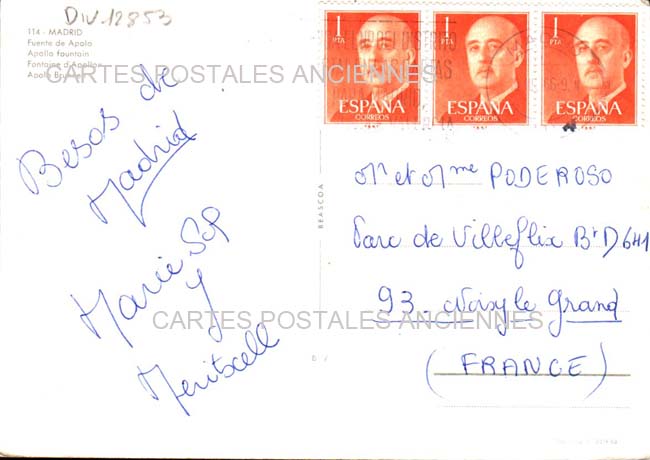 DIV.12853
114 - MADRID
Fuente de Apolo
Apollo fountain
Fontaine d'Apollon
Apollo Brunnen
CARTES POSTALES ANCIENNES
1 PTA ESPAÑA CORREOS
1 PTA ESPAÑA CORREOS
1 PTA ESPAÑA CORREOS
Besos de
Madrid
Marie Sol
y
Meritxell
BEASCOA
Mr et Mme PODEROSO
Parc de Villeflix Bt D641
93. Noisy le Grand
(FRANCE)
CARTES POSTALES ANCIENNES